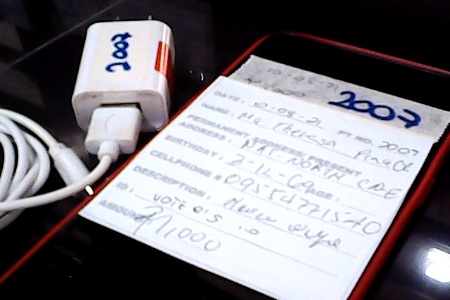 2007
2007
DATE: 10-08-21 PT NO. 2007
NAME: Ma Theresa
PERMANENT ADDRESS/PRESENT
ADDRESS: NORTH
BIRTHDAY: 2-12-69 AGE:
CELLPHONE # 09554771540
DESCRIPTION:
ID: VOTER'S ID
AMOUNT: ₱1,000